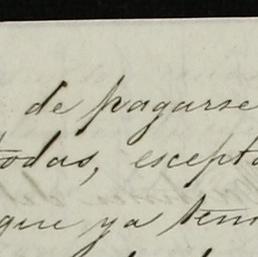 de pagarse
todas, escepto
que ya teni